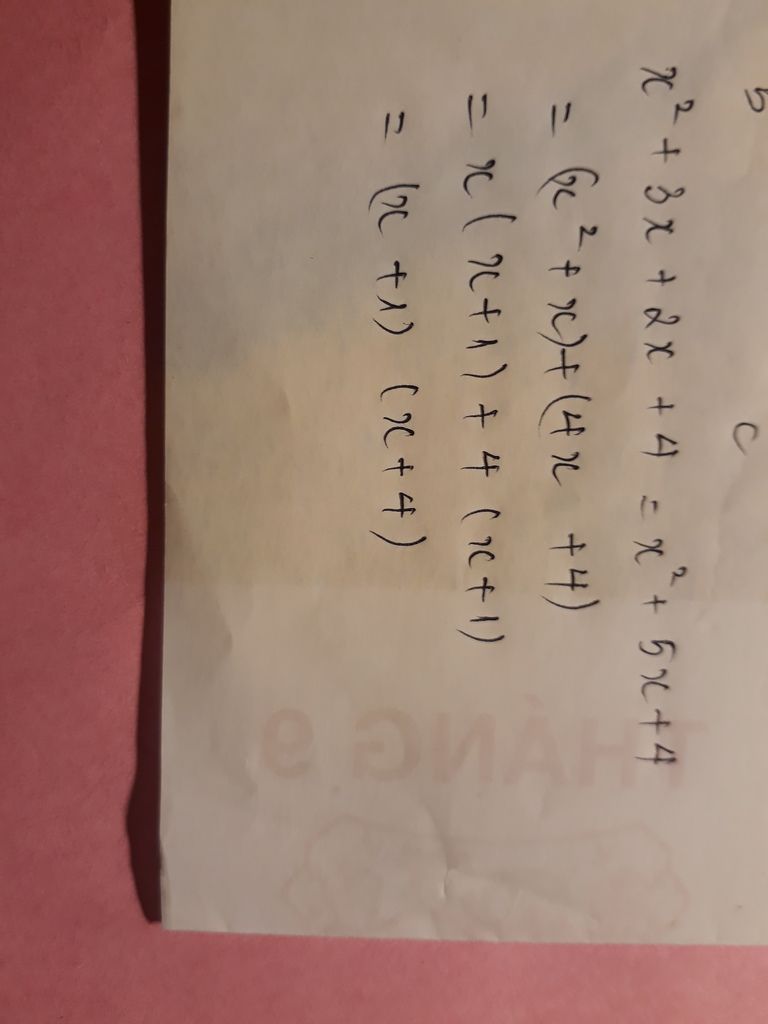 5 c
x² + 3x + 2x + 4 = x² + 5x + 4
= (x² + x) + (4x + 4)
= x (x + 1) + 4 (x + 1)
= (x + 1) (x + 4)
THÁNG 9